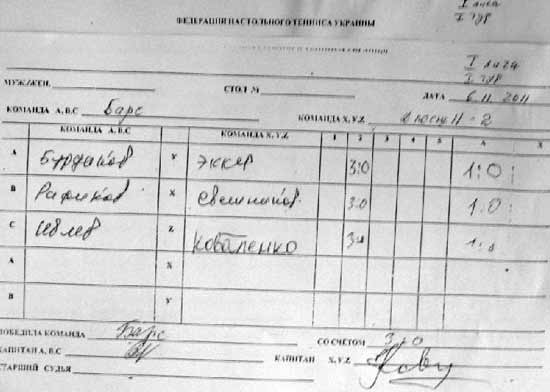 I лига
I тур
ФЕДЕРАЦИЯ НАСТОЛЬНОГО ТЕННИСА УКРАИНЫ
I лига
I тур
МУЖ/ЖЕН. СТОЛ № ДАТА 6.11.2011
КОМАНДА А,В,С Барс КОМАНДА X,Y,Z - 2
КОМАНДА А,В,С КОМАНДА X,Y,Z 1 2 3 4 5 А X
А Бурдаков Y Эккер 3:0 1:0
В Рафиков X Свешников 3:0 1:0
С Ивлев Z Коваленко
А X
В Y
ПОБЕДИЛА КОМАНДА Барс СО СЧЕТОМ 3:0
КАПИТАН А,В,С КАПИТАН X,Y,Z
СТАРШИЙ СУДЬЯ